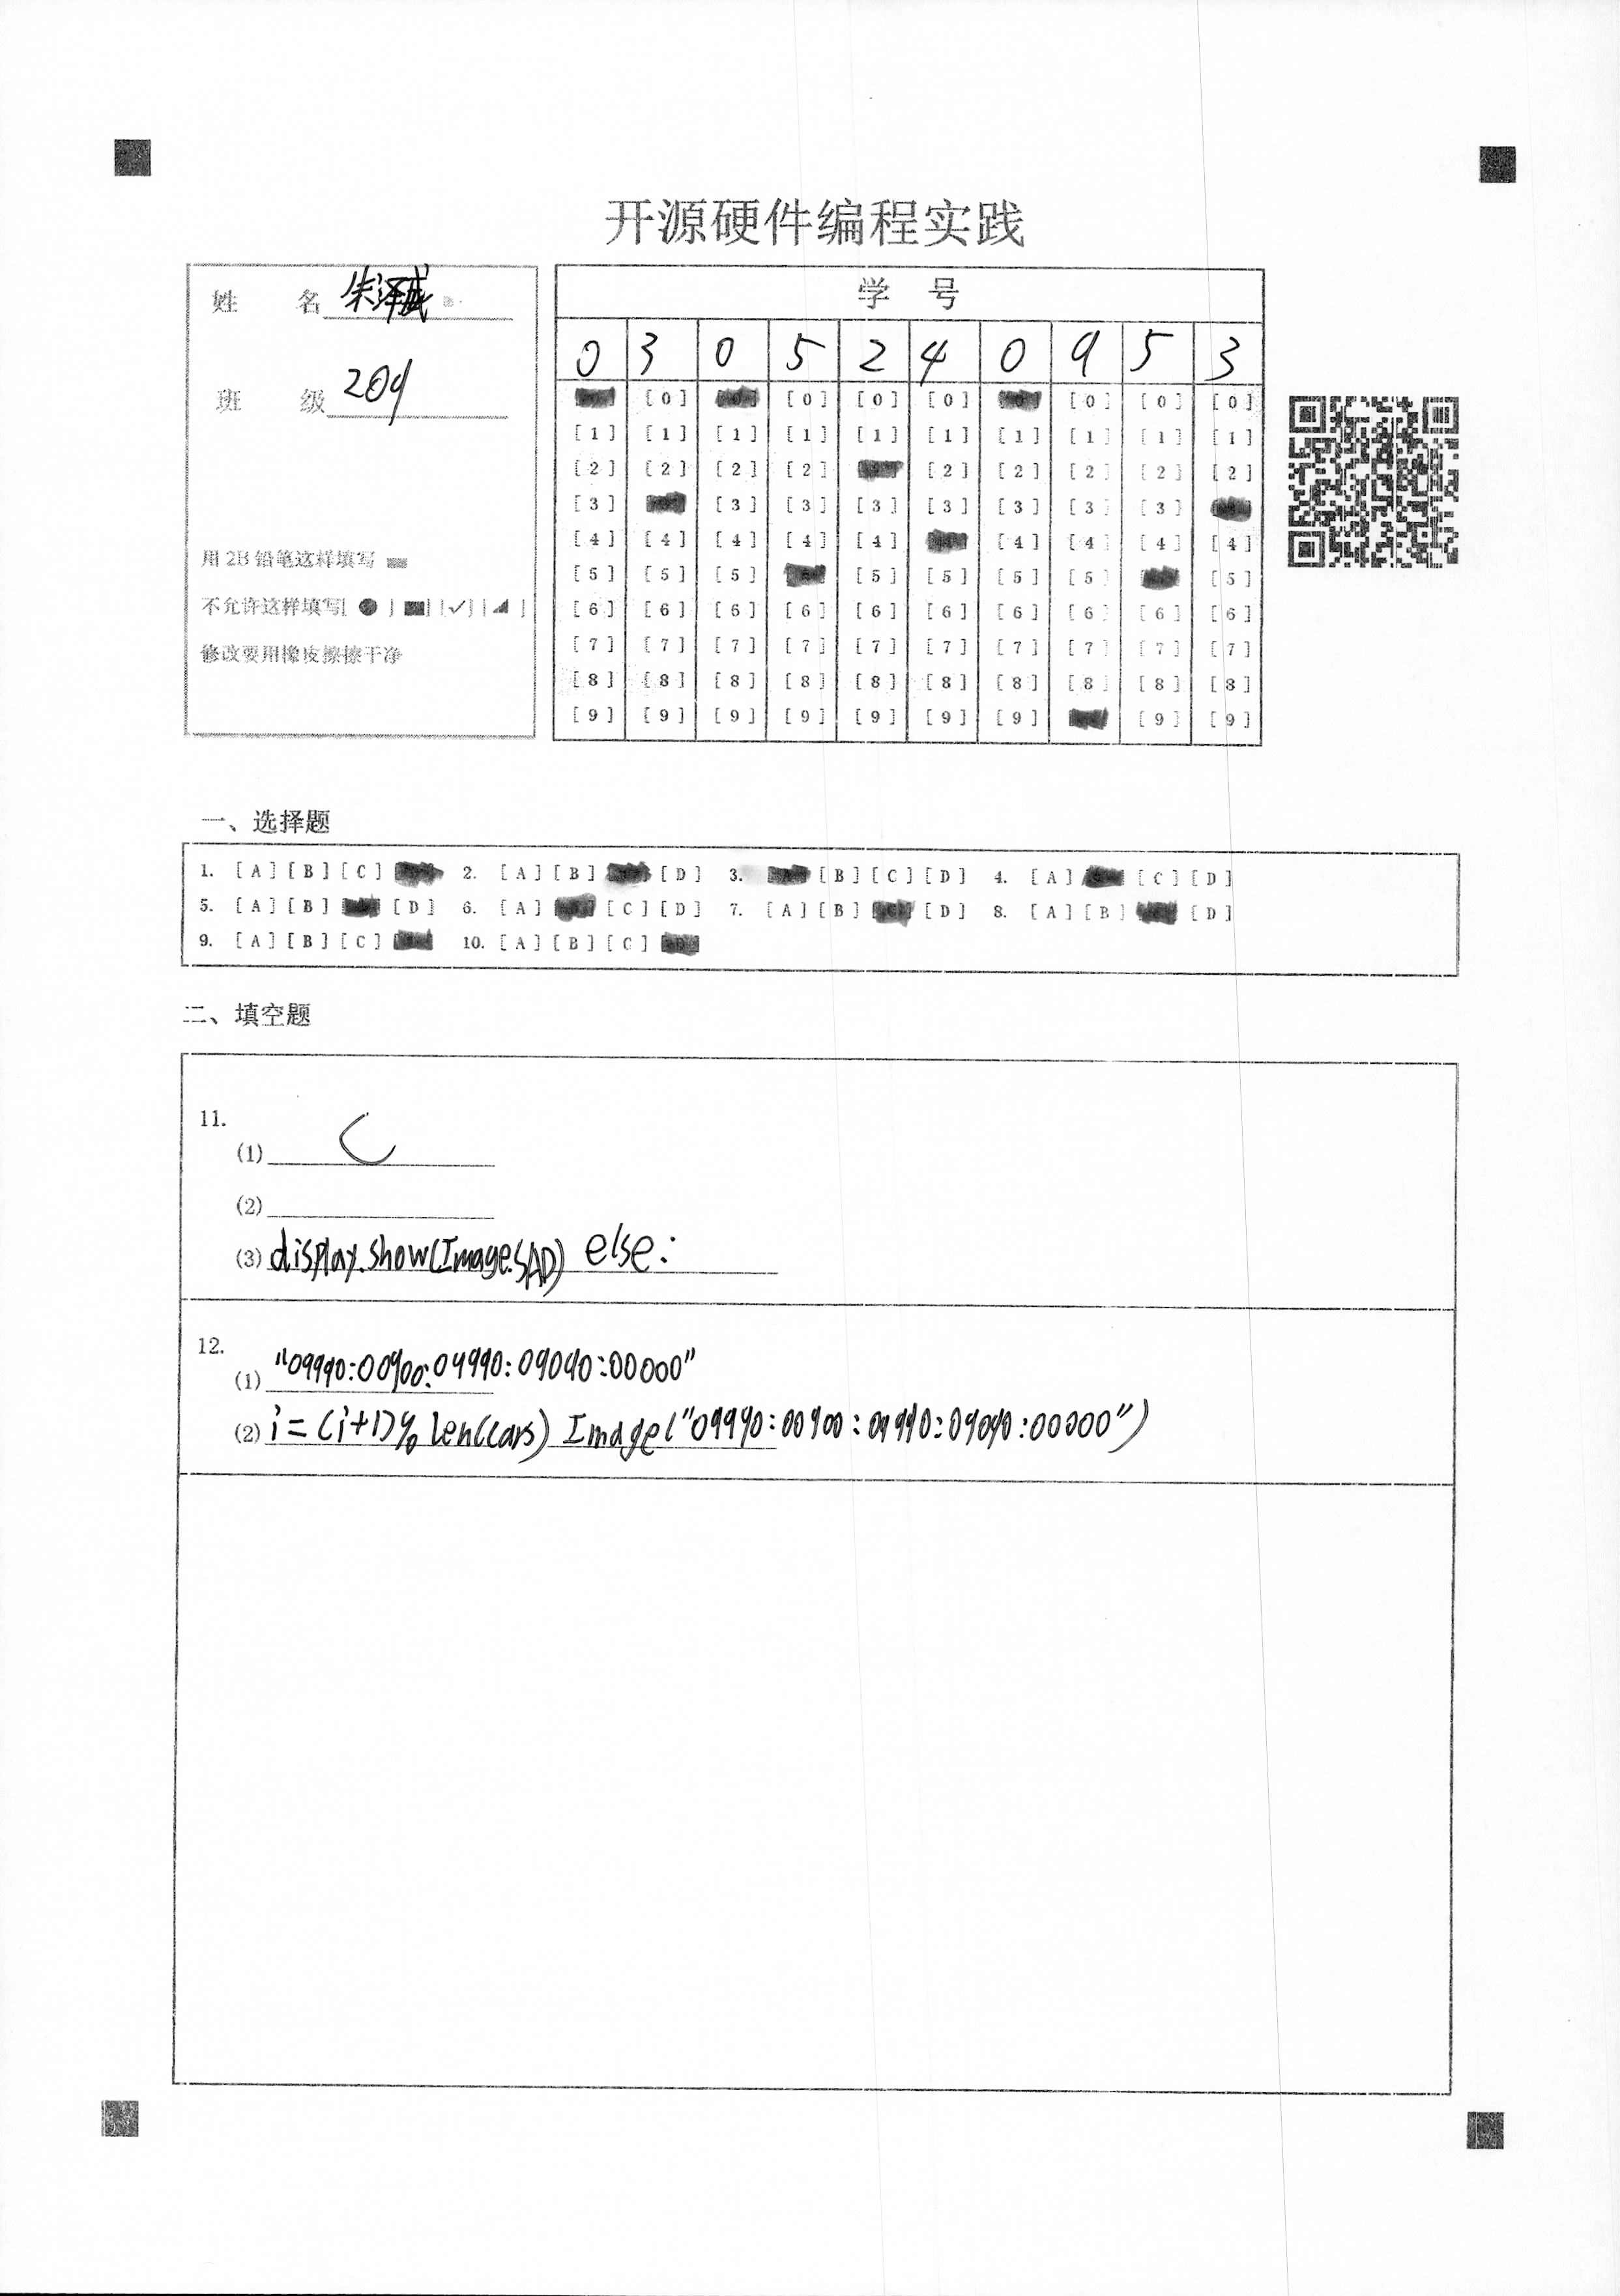 开源硬件编程实践
姓 名 朱泽
班 级 209
用2B铅笔这样填写
不允许这样填写[ ● ] [ ■ ] [ ✓ ] [ ◢ ]
修改要用橡皮擦擦干净
学 号
0 3 0 5 2 4 0 9 5 3
[0] [0] [0] [0] [0] [0] [0]
[1] [1] [1] [1] [1] [1] [1] [1] [1] [1]
[2] [2] [2] [2] [2] [2] [2] [2] [2]
[3] [3] [3] [3] [3] [3] [3] [3]
[4] [4] [4] [4] [4] [4] [4] [4] [4]
[5] [5] [5] [5] [5] [5] [5] [5]
[6] [6] [6] [6] [6] [6] [6] [6] [6] [6]
[7] [7] [7] [7] [7] [7] [7] [7] [7] [7]
[8] [8] [8] [8] [8] [8] [8] [8] [8] [8]
[9] [9] [9] [9] [9] [9] [9] [9] [9]
一、选择题
1. [A] [B] [C] 2. [A] [B] [D] 3. [B] [C] [D] 4. [A] [C] [D]
5. [A] [B] [D] 6. [A] [C] [D] 7. [A] [B] [D] 8. [A] [B] [D]
9. [A] [B] [C] 10. [A] [B] [C]
二、填空题
11.
(1) C
(2)
(3) display.show(Image.SAD) else:
12.
(1) "09990:00900:09990:09090:00000"
(2) i=(i+1)% len(cars) Image("09990:00900:09990:09090:00000")